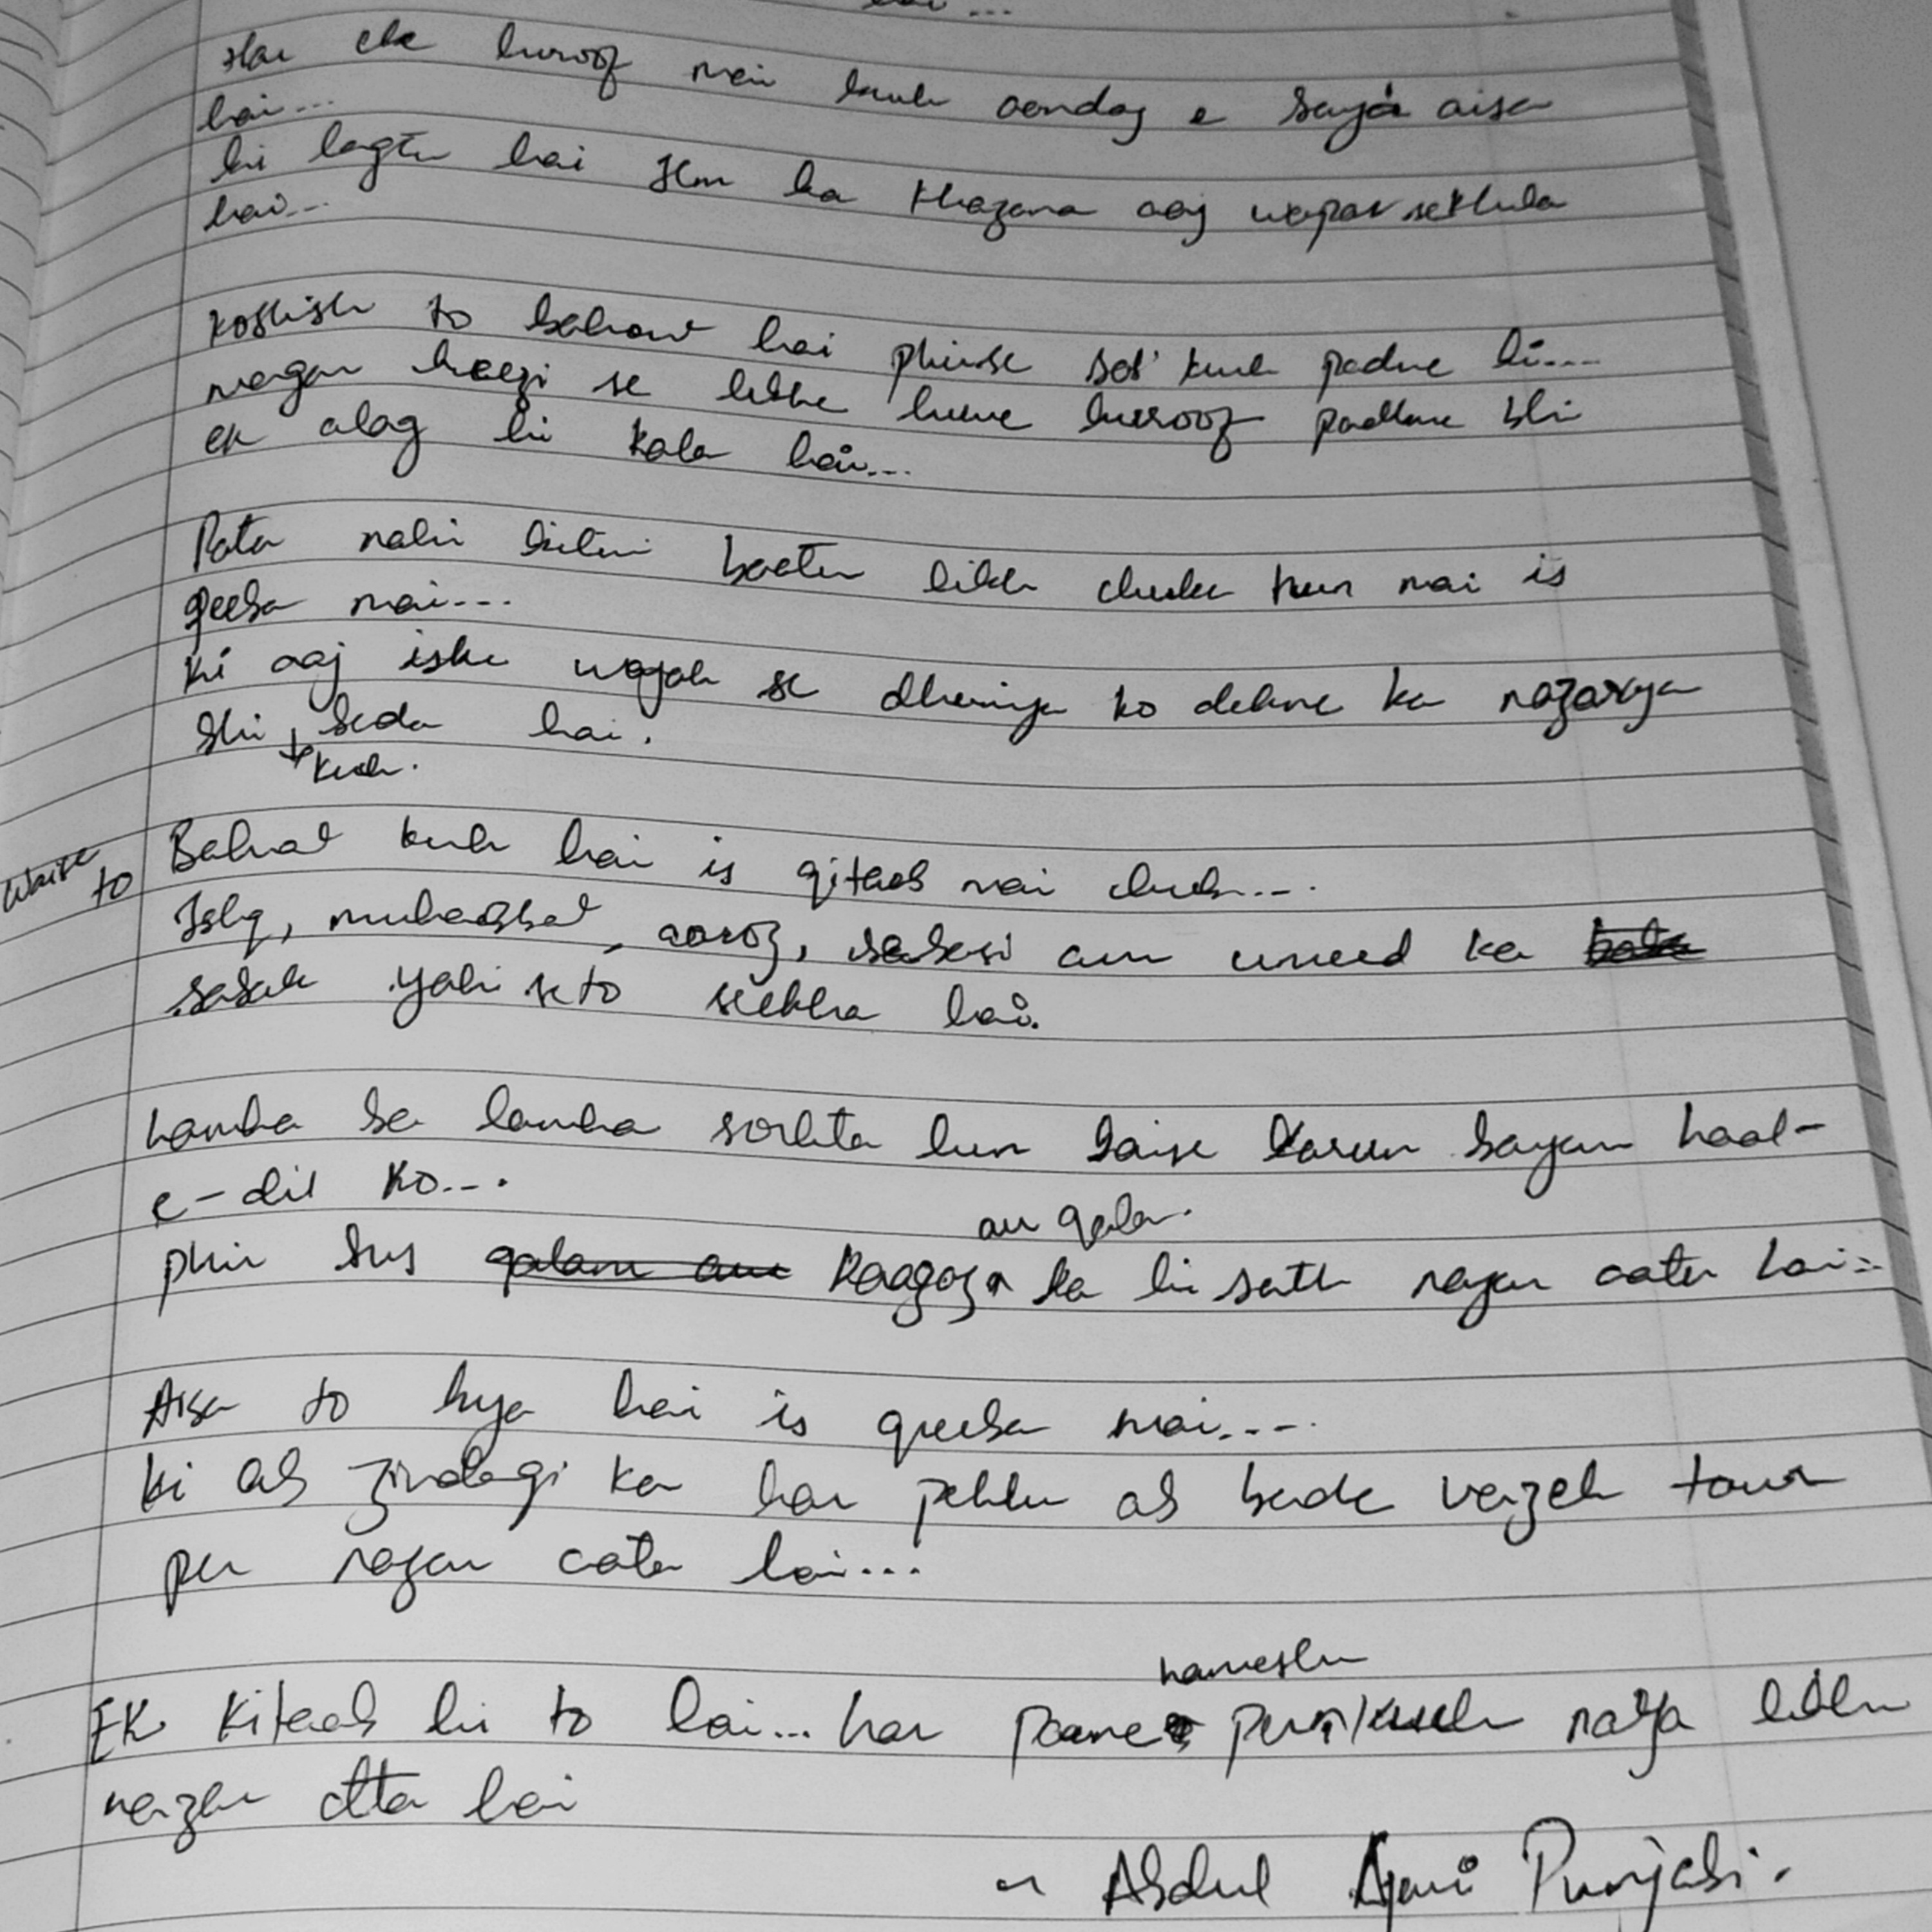 Har ek huroof mein kuch aandaz e baya aisa
hai...
ki lagta hai Ilm ka Khazana aaj wapas se khula
hai...
Koshish to bahout hai phirse sab kuch padne ki...
magar baezi se likhe huwe huroof padhne bhi
ek alag hi kala hai...
Pata nahi kitni baatein likh chuka hun mai is
qeeba mai...
Ki aaj iske wajah se dhuniya ko dekne ka nazarya
bhi bada hai.
kuch.
Waise
to
Bahuat kuch hai is qitaab mai chuda....
Ishq, muhabbat, aaroz, bebasi aur umeed ka
sabak yahi se to seekha hai.
Lamha ba lamha sochta hun kaise karun bayan haal-
e-dil ko....
au qalam.
phir bus qalam aur Kaagaz ka hi sath nazar aata hai..
Aisa to kya hai is qeeba mai....
ki ab zindagi ka har pehlu ab bade vazeh taur
per nazar aata hai...
hamesha
Ek Kitaab hi to hai... har panne per kuch naya likha
nazar atta hai
~ Abdul Ajmi Punjabi.